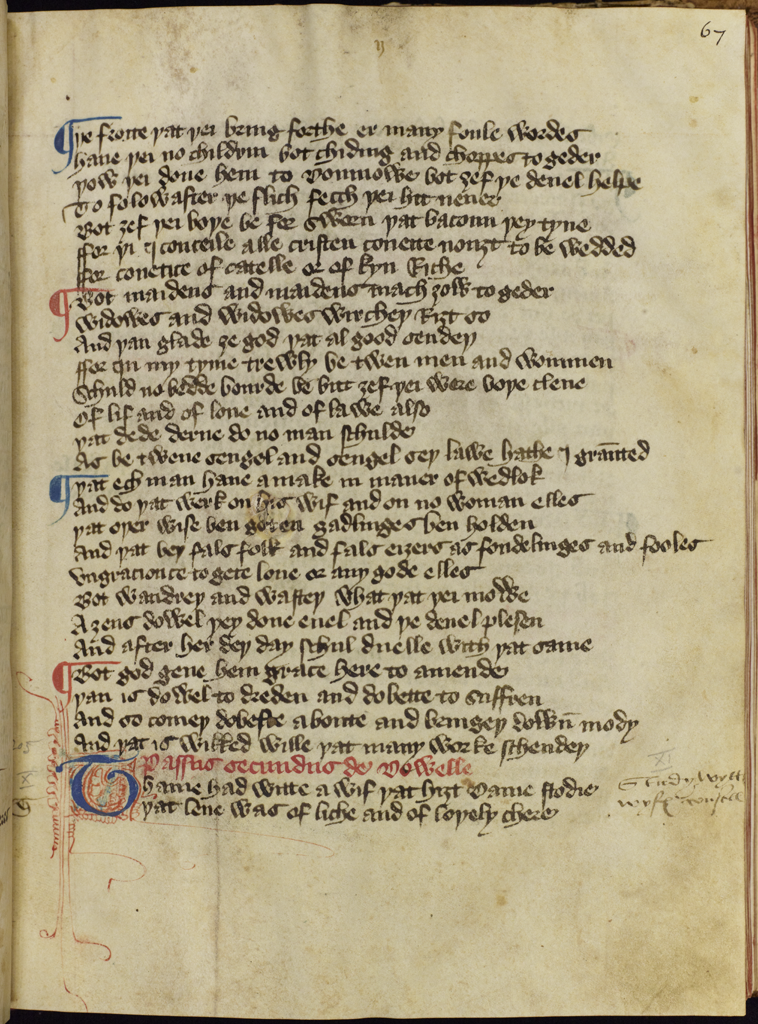 67
þe frotte þat þei bring forthe er many foule wordes
haue þei no childrin bot chiding and choppes to geder
þow þei done hem to donmowe bot ȝef þe deuel helpe
To folow after þe flich fecch þei hit neuer
Bot ȝef þei boþe be for sworn þat bacoun þey tyne
ffor þi I conceile alle cristen coueite nouȝt to be wedded
ffor couetice of catelle or of kyn Riche
Bot maidens and maidens mach ȝow to geder
widowes and widowes wircheþ Riȝt so
And þan glade ȝe god þat al good sendeþ
ffor in my tyme trewly be twen men and wommen
Schuld no bedde bourde be but ȝef þei were boþe clene
Of lif and of loue and of lawe also
þat dede derne do no man schulde
As be twene sengel and sengel seþ lawe hathe I graunted
þat ech man haue a make in maner of wedlok
And do þat werk on his wif and on no woman elles
þat oþer wise ben goten gadlinges ben holden
And þat beþ fals folk and fals eizers as fondelinges and fooles
vngraciouce to gete loue or any gode elles
Bot wandreþ and wasteþ what þat þei mowe
Aȝens dowel þey done euel and þe deuel plesen
And after her deþ day schul duelle with þat same
Bot god geue hem grace here to amende
þan is dowel to dreden and dobette to suffren
And so comeþ dobeste aboute and bringeþ down mody
And þat is wikked wille þat many worke schendeþ
Passus secundus de dowelle
Thanne had witte a wif þat hiȝt Dame stodie
þat lene was of liche and of loþely chere
XI
Study wytts
wyfe